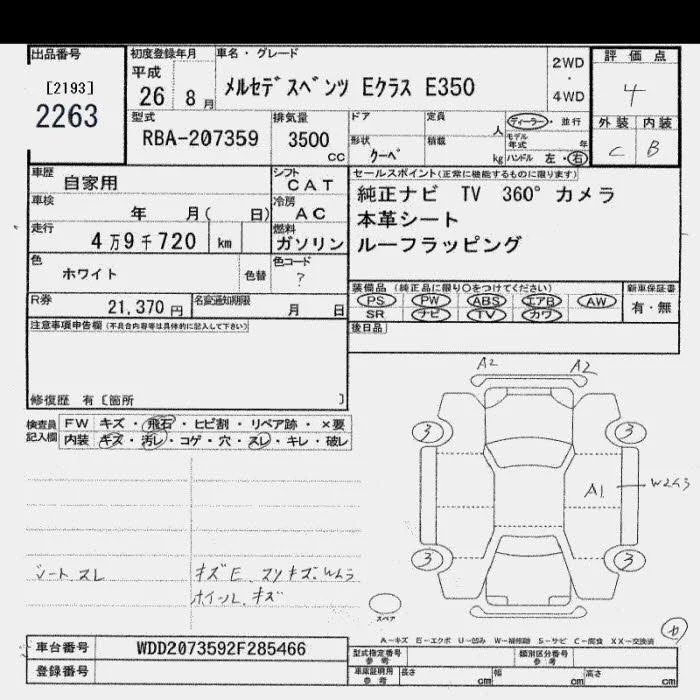 出品番号
[2193]
2263
初度登録年月
平成
26 8 月
車名・グレード
メルセデスベンツ Eクラス E350
2WD
・
4WD
評価点
4
外装 内装
C B
型式
RBA-207359
排気量
3500
cc
ドア
定員
人
形状
クーペ
積載
kg
ディーラー・並行
モデル年式 年
ハンドル 左・右
車歴
自家用
シフト
CAT
車検
年 月( 日)
冷房
AC
走行
4万9千720 km
燃料
ガソリン
色
ホワイト
色替
色コード
?
R券
21,370 円
名変通知期限
月 日
セールスポイント(正常に機能するものに限ります)
純正ナビ TV 360°カメラ
本革シート
ルーフラッピング
装備品(純正品に限り○をつけてください)
PS PW ABS エアB AW
SR ナビ TV カワ
新車保証書
有・無
後日品
注意事項申告欄(不具合内容等は具体的に記入して下さい)
修復歴 有〔箇所 〕
検査員記入欄
FW キズ・飛石・ヒビ割・リペア跡・×要
内装 キズ・汚レ・コゲ・穴・スレ・キレ・破レ
シートスレ
キズE. スリキズ. Wムラ
ホイール. キズ
A2 A2
3 3
A1 W2 3
3 3
スペア
A-キズ E-エクボ U-凹み W-補修跡 S-サビ C-腐食 XX-交換済
車台番号 WDD2073592F285466
登録番号
型式指定番号
参考
類別区分番号
参考
車庫証明用
参考
長さ cm 幅 cm 高さ cm